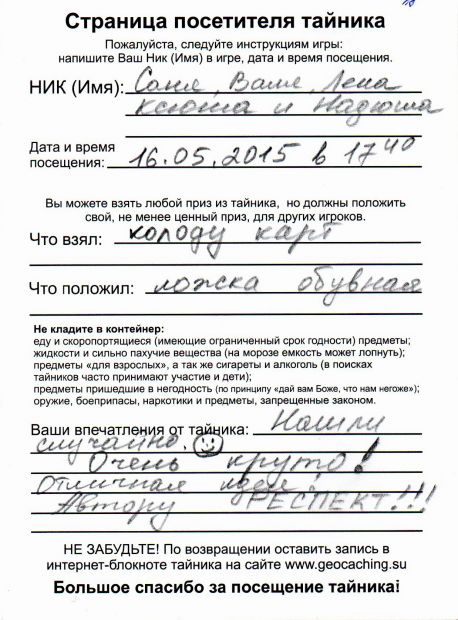 Страница посетителя тайника
Пожалуйста, следуйте инструкциям игры:
напишите Ваш Ник (Имя) в игре, дата и время посещения.
НИК (Имя): Соня, Валя, Лена
Ксюша и Надюша
Дата и время
посещения: 16.05.2015 в 17 40
Вы можете взять любой приз из тайника, но должны положить
свой, не менее ценный приз, для других игроков.
Что взял: колоду карт
Что положил: ложка обувная
Не кладите в контейнер:
еду и скоропортящиеся (имеющие ограниченный срок годности) предметы;
жидкости и сильно пахучие вещества (на морозе емкость может лопнуть);
предметы «для взрослых», а так же сигареты и алкоголь (в поисках
тайников часто принимают участие и дети);
предметы пришедшие в негодность (по принципу «дай вам Боже, что нам негоже»);
оружие, боеприпасы, наркотики и предметы, запрещенные законом.
Ваши впечатления от тайника: Нашли
случайно.
Очень круто!
Отличная идея!
Автору РЕСПЕКТ!!!
НЕ ЗАБУДЬТЕ! По возвращении оставить запись в
интернет-блокноте тайника на сайте www.geocaching.su
Большое спасибо за посещение тайника!